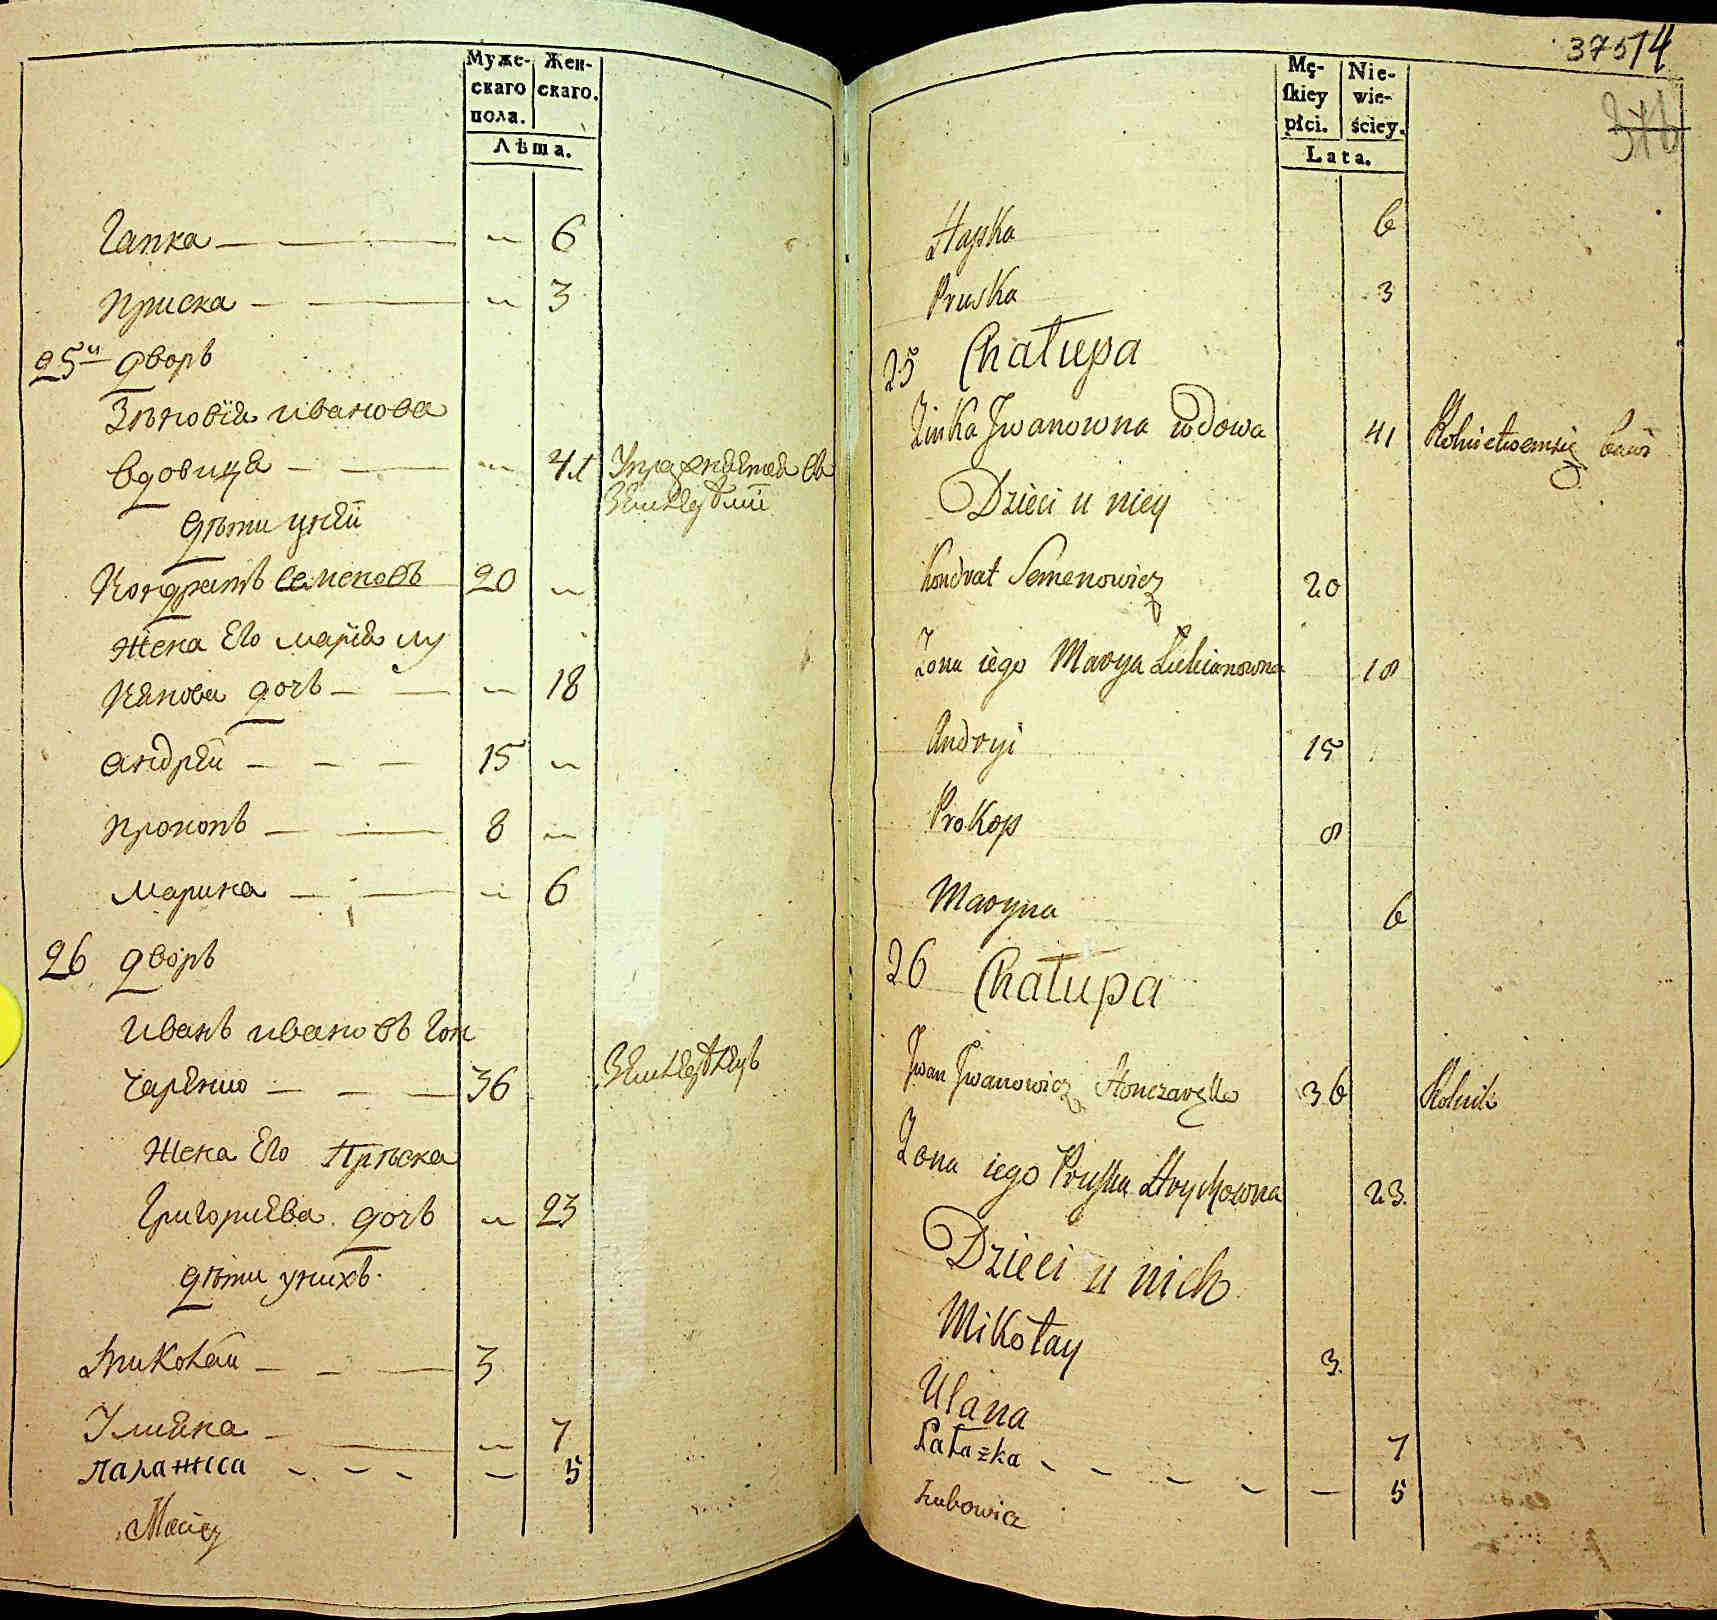 Муже- Жен-
скаго скаго.
пола.
Лѣта.
Гапка — — — " 6
Приска — — " 3
25й дворъ
Зѣновїя иванова
вдовица — — " 41 Упражняется въ
Землед̃ѣлїи
дѣти унея
Кондратъ Семеновъ 20 "
Жена Его марїя лу
кянова дочь — — " 18
андрей — — — 15 "
Прокопъ — — 8 "
Марина — — " 6
26 дворъ
иванъ ивановъ Гон
чаренко — — — 36 Земледѣлецъ
Жена Его Прѣска
Григориева дочь " 23
дѣти унихъ.
Николай — — — 3
Улияна — — " 7
Палажка – – – – 5
Maciey
37514
376
Mę- Nie-
skiey wie-
płci. ściey.
Lata.
Hapka 6
Pruska 3
25 Chałupa
Zinka Jwanowna wdowa 41 Rolnictwem się bawi
Dzieci u niey
Kondrat Semenowicz 20
Zona iego Marya Łukianowna 18
Andryi 15
Prokop 8
Maryna 6
26 Chałupa
Jwan Jwanowicz Honczarenko 36 Rolnik
Zona iego Pruska Hryhorowna 23.
Dzieci u nich
Mikołay 3.
Ulana 7
Pałażka – – – – – – 5
Łubowicz